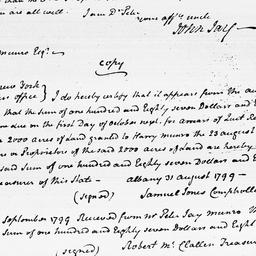 you are all well. I am Dr Peter your affte uncle
John Jay
Munro Esqr.
Copy
New York
office } I do hereby certify that it appears from the
that the sum of one hundred and Eighty seven Dollars and
due on the first day of October next. for arrears of Quit
2000 acres of Land granted to Harry Munro the 23 august
or Proprietors of the said 2000 acres of Land are hereby
said Sum of one hundred and Eighty seven Dollars and
Treasurer of this State - Albany 31 august 1799 -
(signed) Samuel Jones Comptroller
September 1799 Received from Mr Peter Jay Munro
Sum of one hundred and Eighty seven Dollars and Eight
(signed) Robert McClallen Treasurer